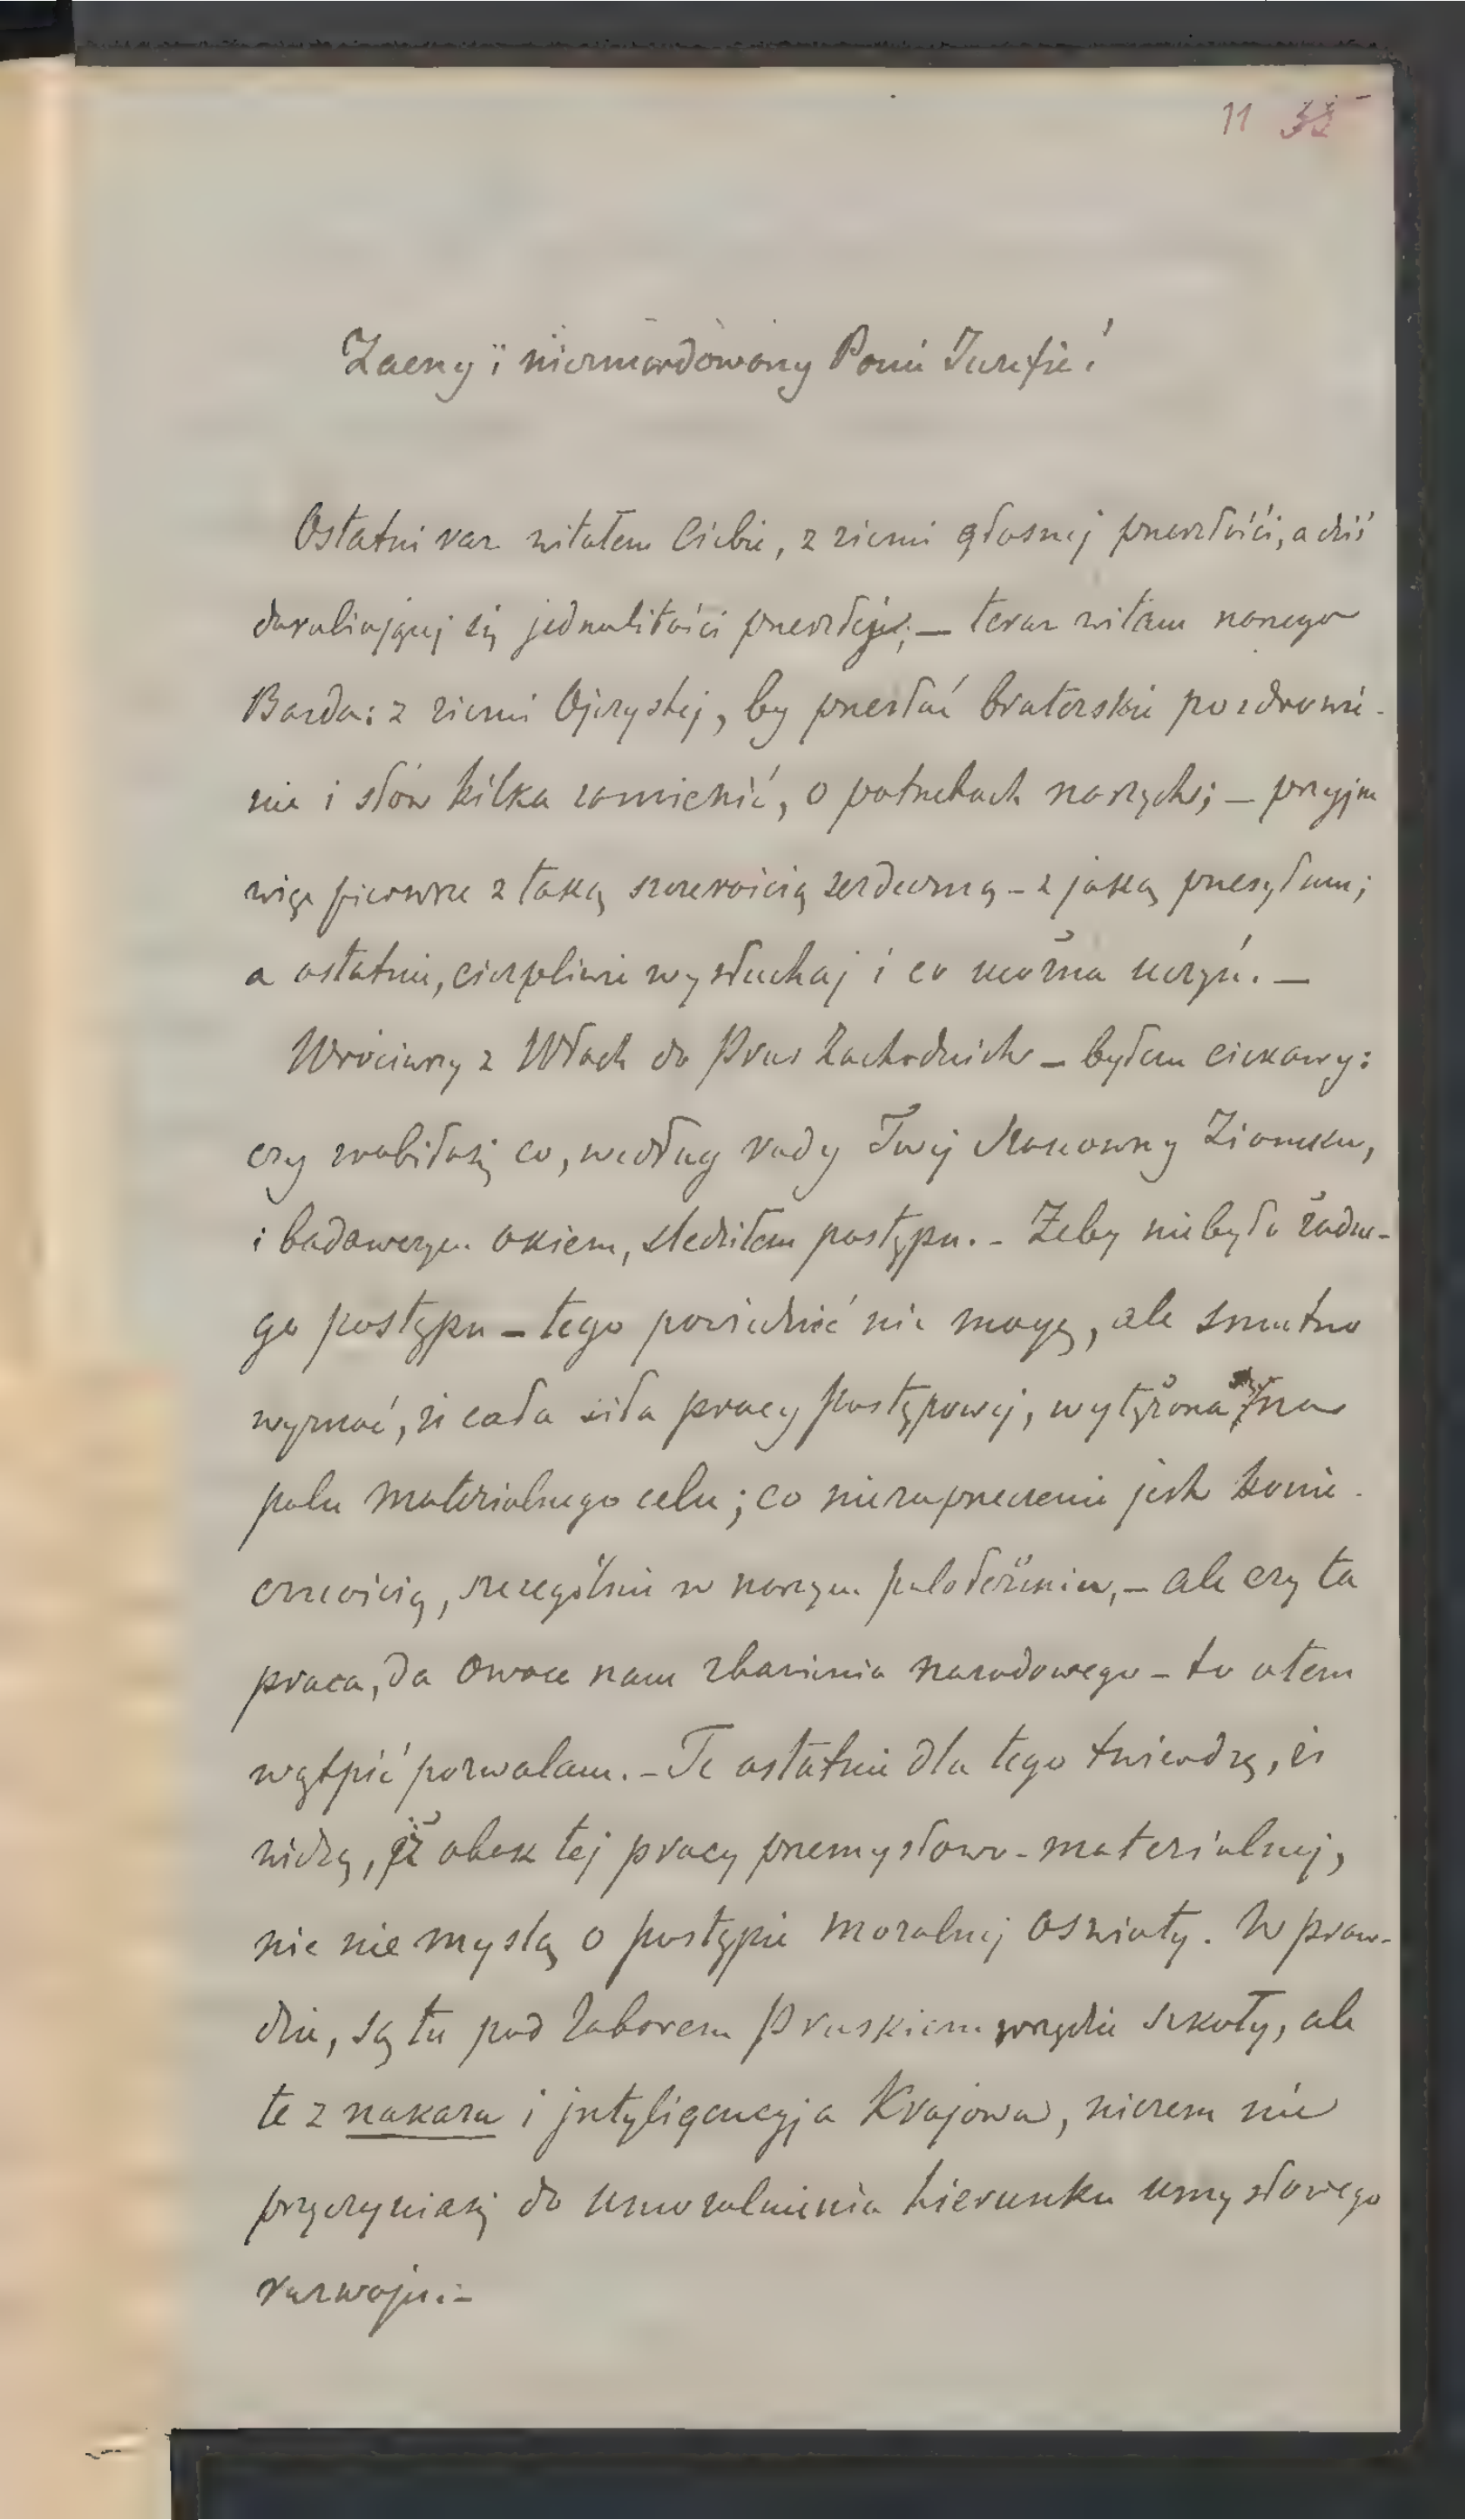 11 35
Zacny i niezmordowany Panie Józefie!
Ostatni raz witałem Ciebie, z ziemi głośnej przeszłości, a dziś
dorabiającej się jednolitości przeszłej; — teraz witam naszego
Barda: z ziemi Ojczystej, by przesłać braterskie pozdrowie-
nie i słów kilka zamienić, o potrzebach naszych; — przyjm
więc pierwsze z taką szczerością serdeczną – z jaką przesyłam;
a ostatnie, cierpliwie wysłuchaj i co można uczyń. —
Wróciwszy z Włoch do Prus Zachodnich – byłem ciekawy:
czy zrobiłosię co, według rady Twej Szanowny Ziomku,
i badawczym okiem, śledziłem postępu. – Żeby niebyło żadne-
go postępu – tego powiedzieć nie mogę, ale smutno
wyznać, iż cała siła pracy postępowej, wytężona na
polu materialnego celu; co niezaprzeczenie jest konie-
cznością, szczególnie w naszym położeniu, – ale czy ta
praca, da owoce nam zbawienia narodowego – to otem
wątpić pozwalam. – Te ostatnie dla tego twierdzę, iż
widzę, iż obok tej pracy przemysłowo-materialnej,
nic nie myslą o postępie moralnej oswiaty. W praw-
dzie, są tu pod Zaborem Pruskiem wszędzie szkoły, ale
te z nakazu i jntyligencyja Krajowa, niczem nie
przyczyniasię do umoralnienia kierunku umysłowego
rozwoju. –